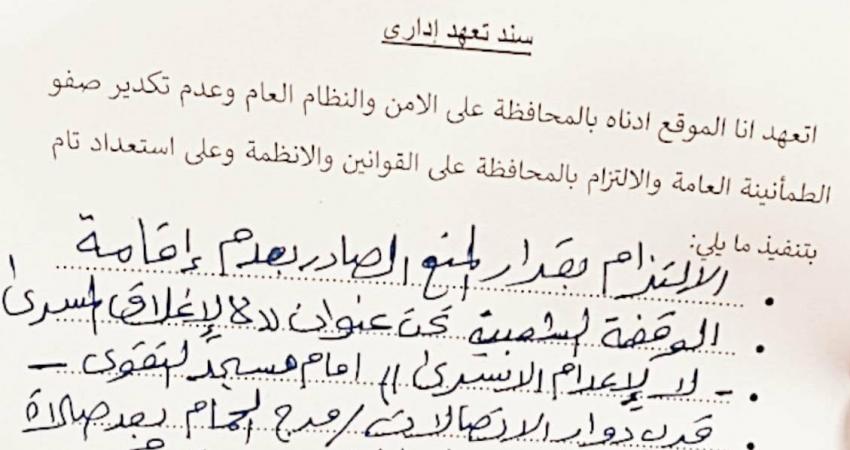 سند تعهد إدارى
اتعهد انا الموقع ادناه بالمحافظة على الامن والنظام العام وعدم تكدير صفو
الطمأنينة العامة والالتزام بالمحافظة على القوانين والانظمة وعلى استعداد تام
بتنفيذ ما يلي:
الالتزام بقرار المنع الصادر بعدم إقامة
الوقفة الشعبية تحت عنوان لا لإغلاق المسرى
- لا لإعدام الاسرى" امام مسجد التقوى -
قرب دوار الاتصالات / مرج الحمام بعد صلاة